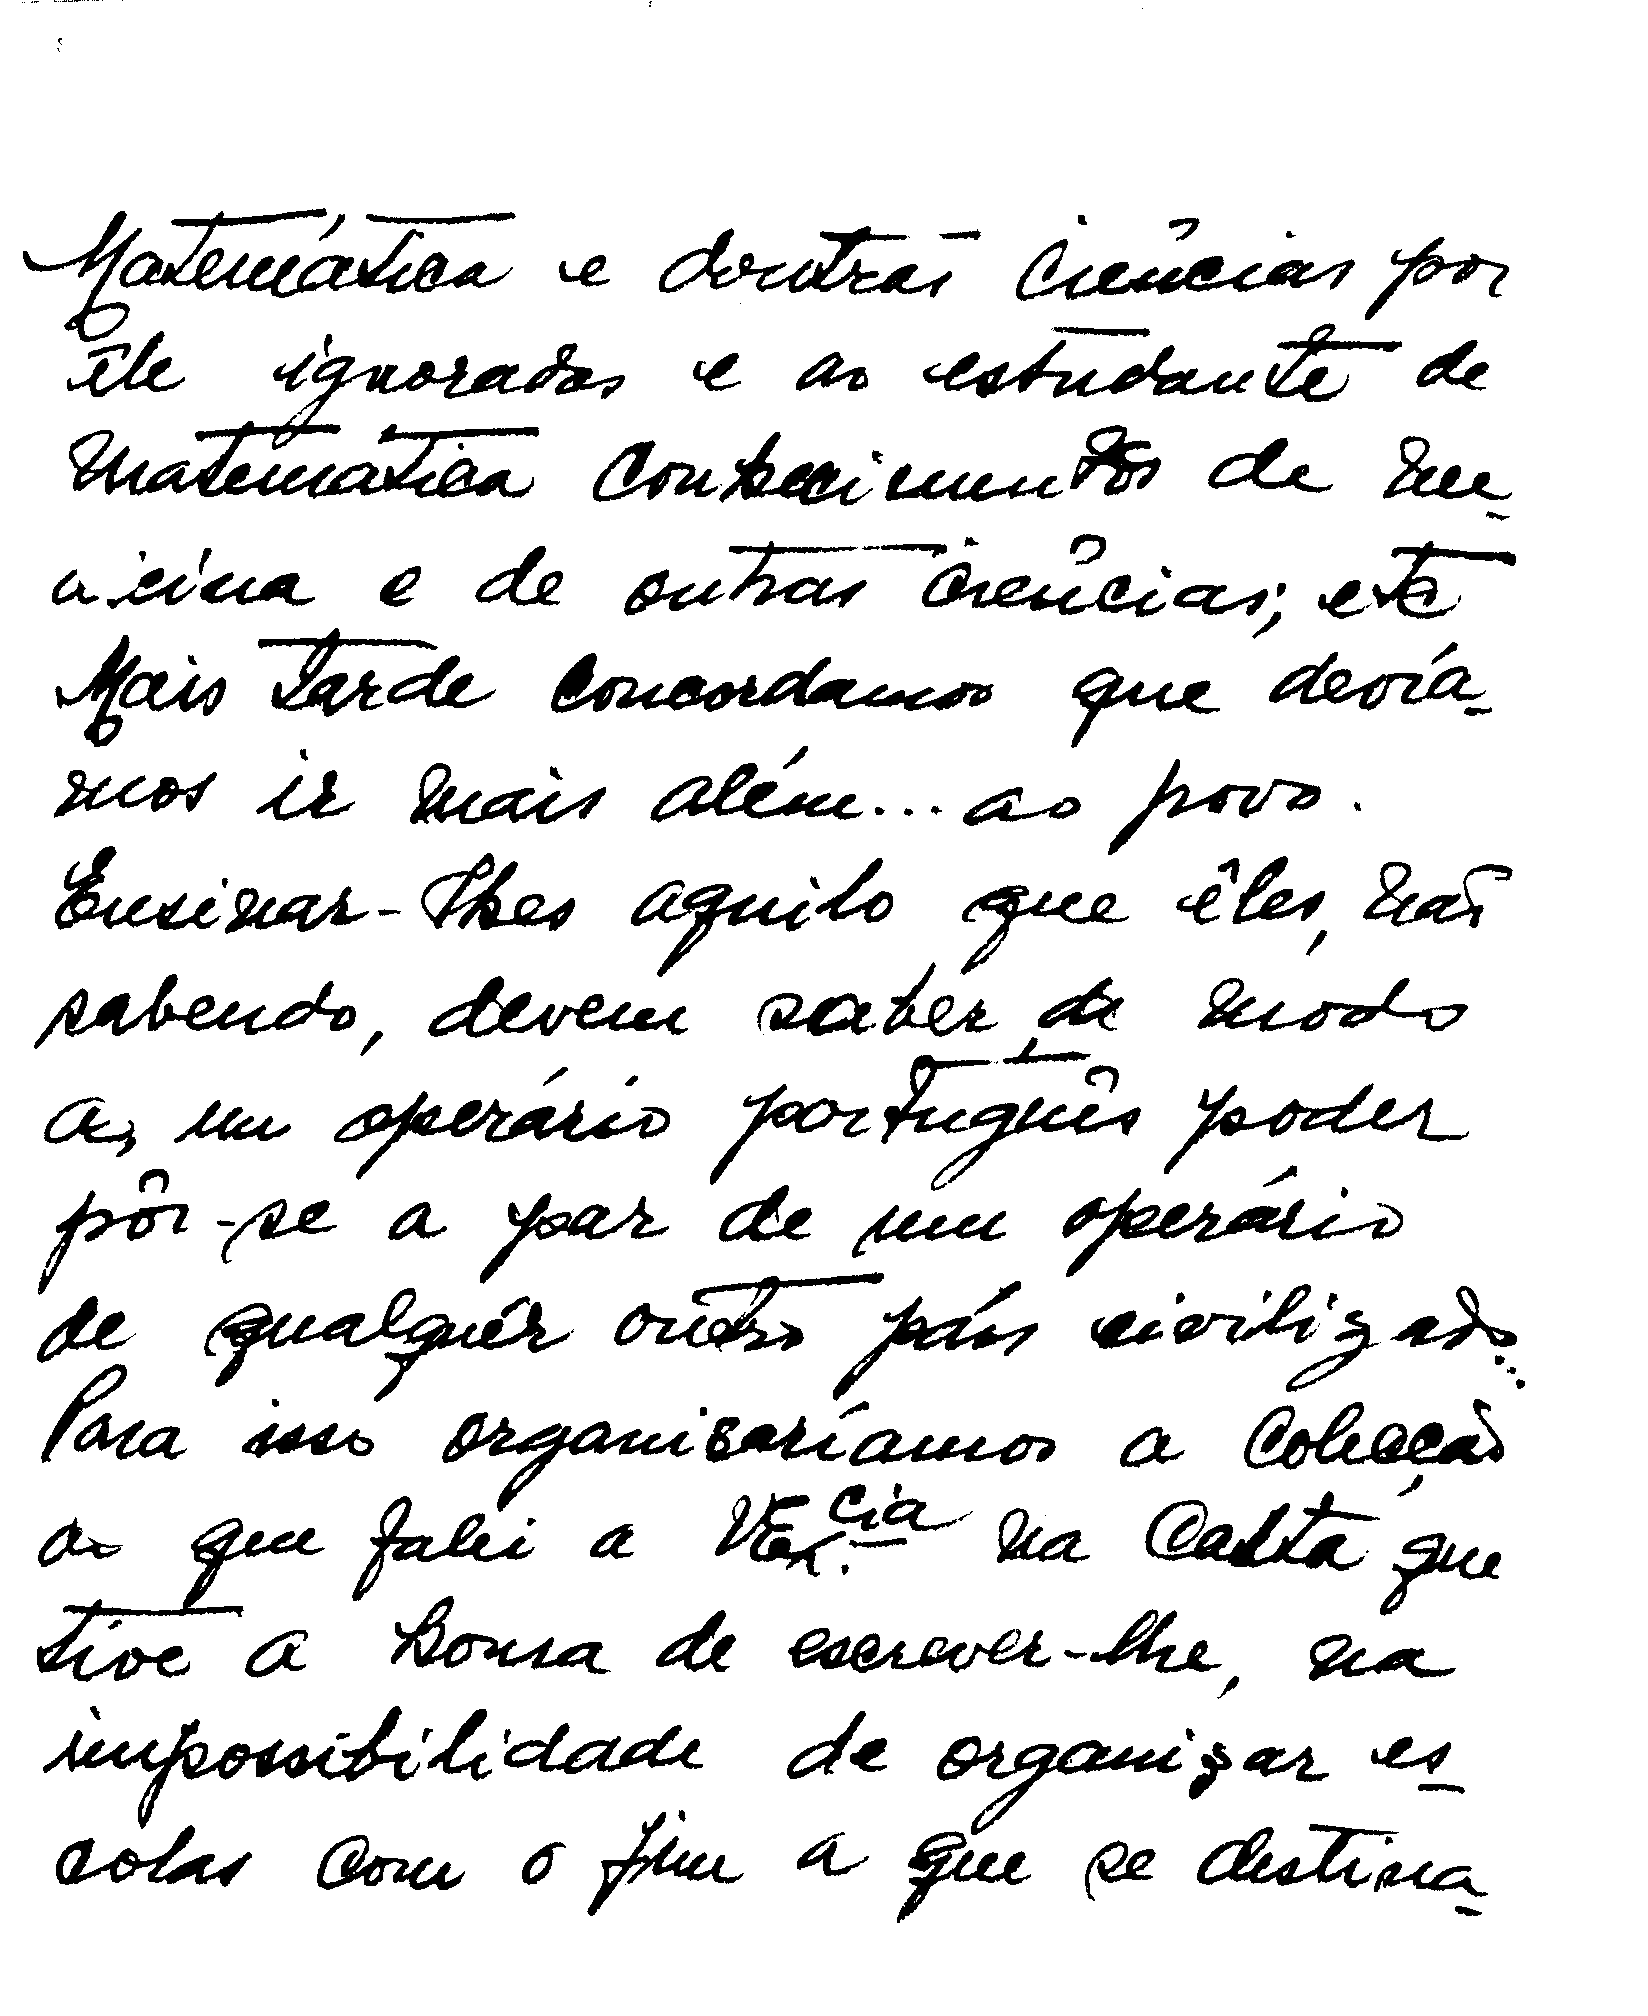 Matemática e doutras Ciências por
êle ignorados e ao estudante de
Matemática Conhecimentos de me-
dicina e de outras Ciências; etc
Mais tarde concordamos que devía-
mos ir mais além... ao povo.
Ensinar-lhes aquilo que êles, não
sabendo, devem saber, de modo
a, um operário português poder
pôr-se a par de um operário
de qualquér outro país civilizado...
Para isso organisaríamos a Colecção
a que falei a V. Ex.cia na Carta que
tive a honra de escrever-lhe, na
impossibilidade de organizar es-
colas com o fim a que se destina-